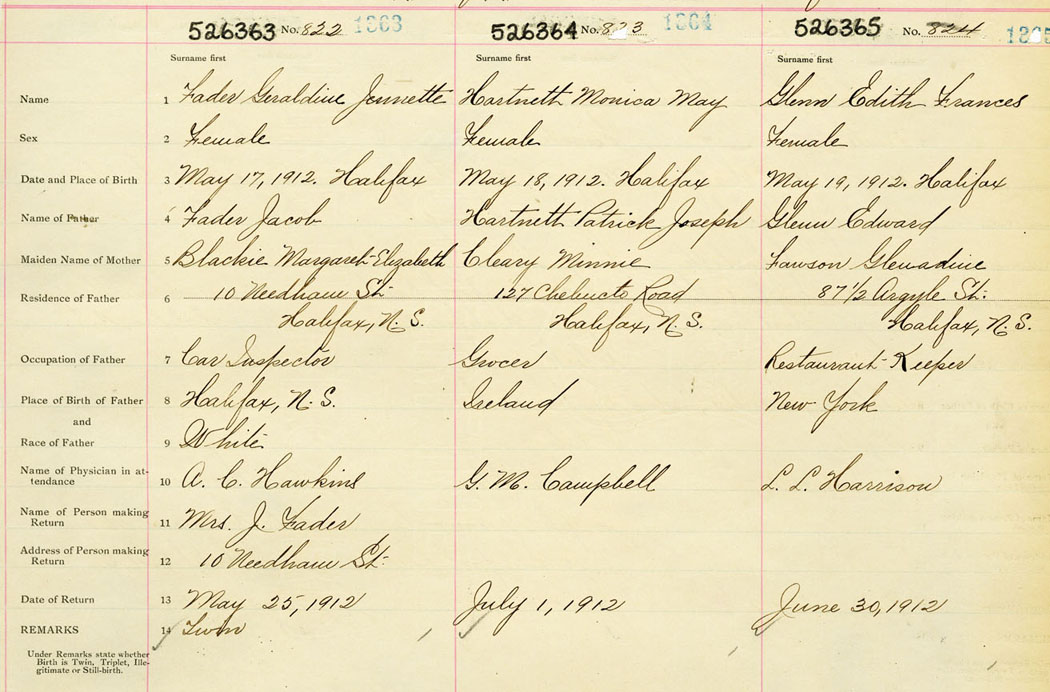 526363 No. 822 1863 526364 No. 823 1864 526365 No. 824
Surname first Surname first Surname first
Name 1 Fader Geraldine Jennette Hartnett Monica May Glenn Edith Frances
Sex 2 Female Female Female
Date and Place of Birth 3 May 17, 1912. Halifax May 18, 1912. Halifax May 19, 1912. Halifax
Name of Father 4 Fader Jacob Hartnett Patrick Joseph Glenn Edward
Maiden Name of Mother 5 Blackie Margaret Elizabeth Cleary Minnie Fawson Glenadine
Residence of Father 6 10 Needham St. 127 Chebucto Road 87 1/2 Argyle St.
Halifax, N. S. Halifax, N. S. Halifax, N. S.
Occupation of Father 7 Car Inspector Grocer Restaurant-Keeper
Place of Birth of Father 8 Halifax, N. S. Ireland New York
and
Race of Father 9 White
Name of Physician in at-
tendance 10 A. C. Hawkins G. M. Campbell L. L. Harrison
Name of Person making
Return 11 Mrs. J. Fader
Address of Person making
Return 12 10 Needham St.
Date of Return 13 May 25, 1912 July 1, 1912 June 30, 1912
REMARKS 14 Twin
Under Remarks state whether
Birth is Twin, Triplet, Ille-
gitimate or Still-birth.